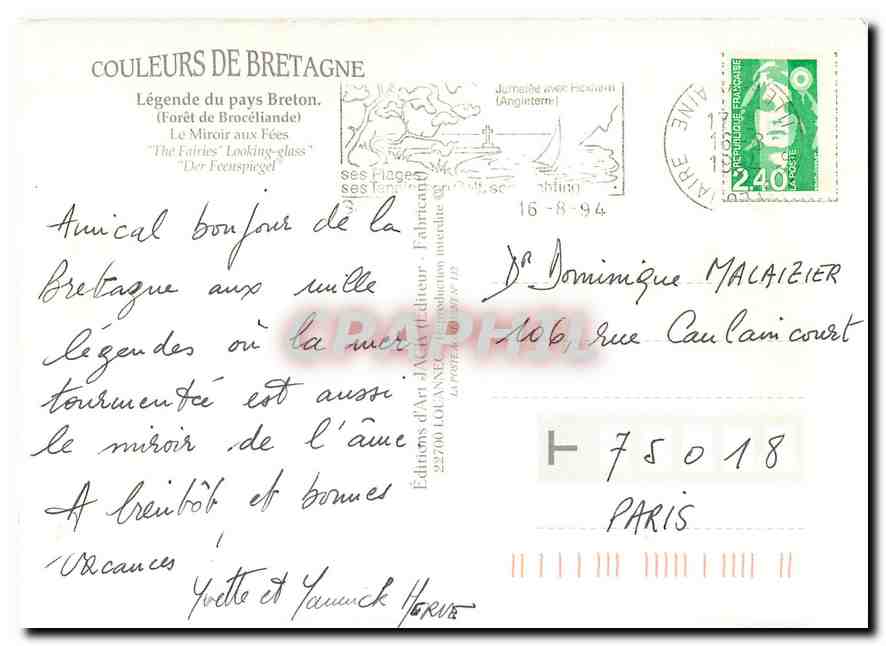 COULEURS DE BRETAGNE
Légende du pays Breton.
(Forêt de Brocéliande)
Le Miroir aux Fées
"The Fairies' Looking-glass"
"Der Feenspiegel"
Jumelée avec
(Angleterre)
ses Plages
ses
16-8-94
RÉPUBLIQUE FRANÇAISE
2,40
LA POSTE
Amical bonjour de la
Bretagne aux mille
légendes où la mer
tourmentée est aussi
le miroir de l'âme
A bientôt et bonnes
vacances !
Yvette et Yannick HERVE
Éditions d'Art JACK (Éditeur - Fabricant)
22700 LOUANNEC reproduction interdite
Dr Dominique MALAIZIER
106, rue Caulaincourt
75018
PARIS
GRAPHIL